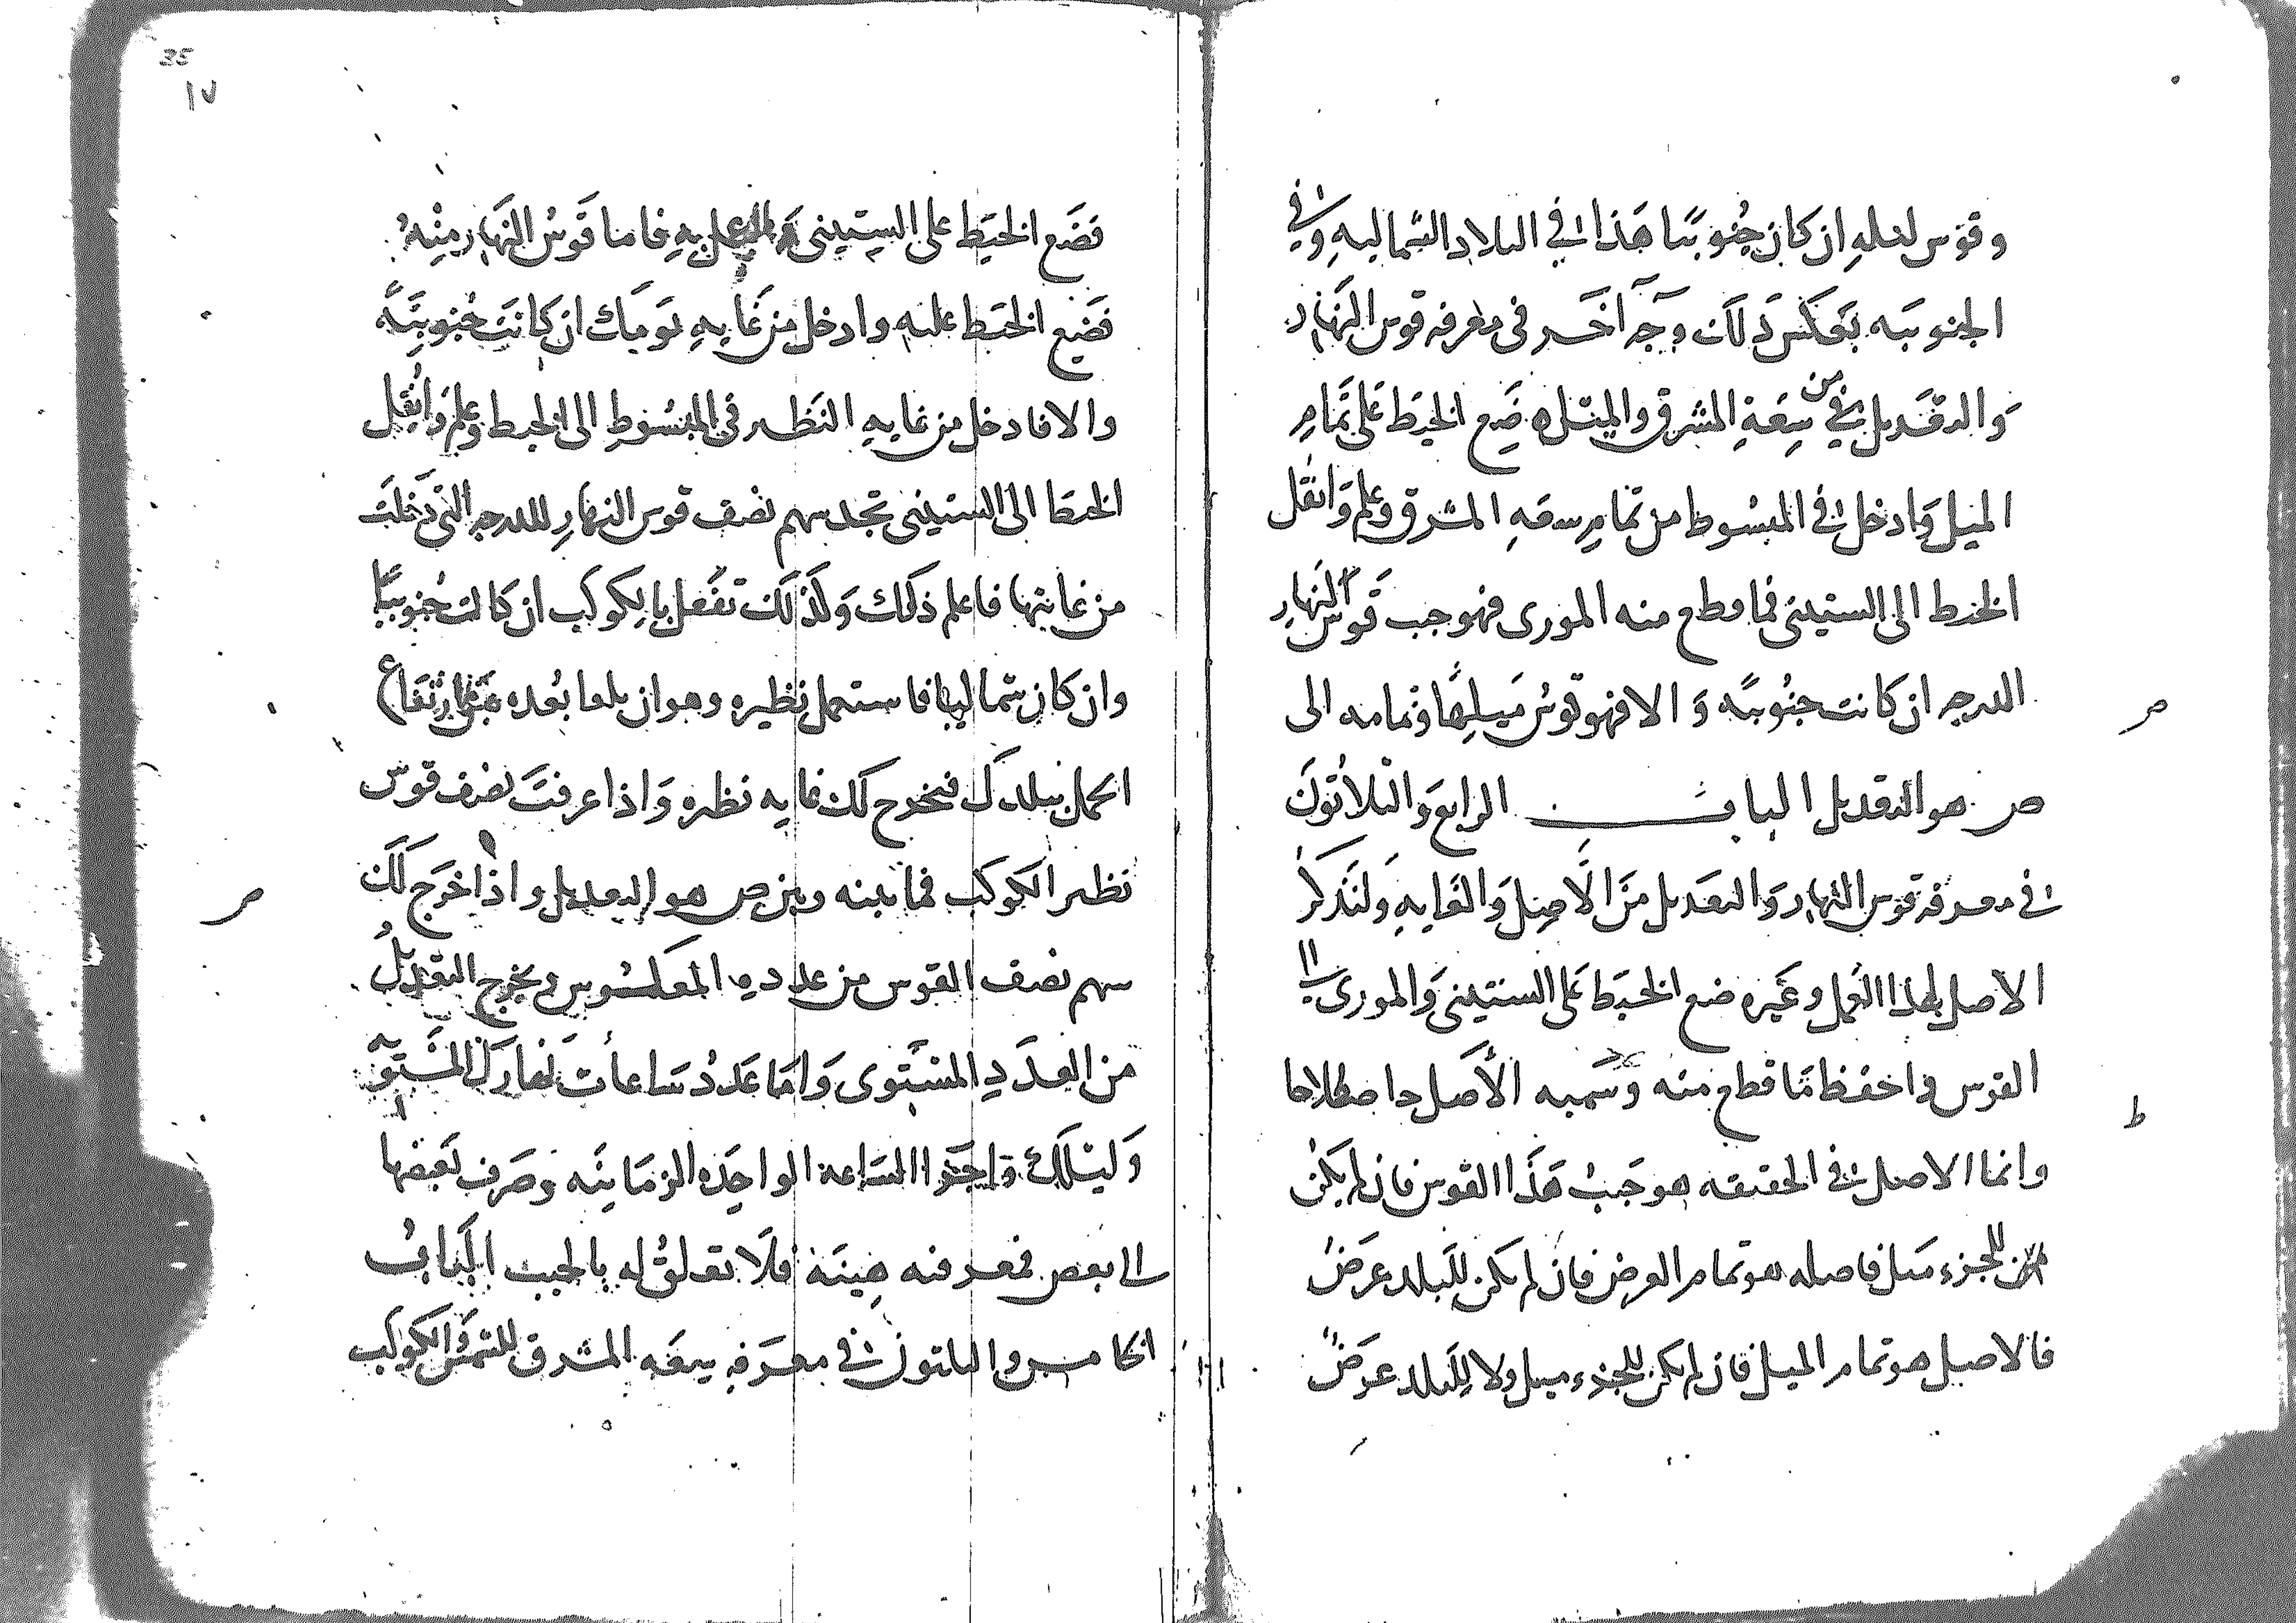 وقوس ليله ان كان جنوبيا هذا في البلاد الشماليه وفي
الجنوبيه بعكس ذلك وجه آخر في معرفه قوس النهار
والتعديل من سعة المشرق والميل ضع الخيط على تمام
الميل وادخل في المبسوط من تمام سعه المشرق وعلم وانقل
الخيط الى الستيني فما قطع منه المورى فهو جيب قوس النهار
الدرجه ان كانت جنوبيه والا فهو قوس ميلها وتمامه الى
ص هو التعديل الباب الرابع والثلاثون
في معرفه قوس النهار والتعديل من الاصل والغايه ولنذكر
الاصل لهذا العمل وغيره ضع الخيط على الستيني والمورى الى
القوس واحفظ ما قطع منه وسميه الأصل اصطلاحا
وانما الاصل في الحقيقه هو جيب هذا القوس فان لم يكن
للجزء ميل فاصله هو تمام العرض فان لم يكن للبلد عرض
فالاصل هو تمام الميل فان لم يكن للجزء ميل ولا للبلد عرض
35
١٧
فضع الخيط على الستيني فاما قوس النهار منه
فضع الخيط عليه وادخل من غايه يومك ان كانت جنوبيه
والا فادخل من غايه النظير في المبسوط الى الخيط وعلم وانقل
الخيط الى الستيني تجد سهم نصف قوس النهار للدرجه التي دخلت
من غايتها فاعلم ذلك وكذلك تفعل بالكوكب ان كانت جنوبيا
وان كان شماليا فاستعمل نظيره وهو ان بعده ارتفاع
الحمل ببلدك فيخرج لك غايه نظيره واذا عرفت نصف قوس
نظير الكوكب فما بينه وبين ص هو التعديل واذا خرج لك
سهم نصف القوس من عدده المعكوس ويخرج التعديل
من العدد المستوى واما عدد ساعات نهارك المستويه
وليلك واجزا الساعة الواحده الزمانيه وصرف بعضها
الى بعض فمعرفته هينة فلا تعلق له بالجيب الباب
الخامس والثلاثون في معرفه سعه المشرق للشمس والكوكب